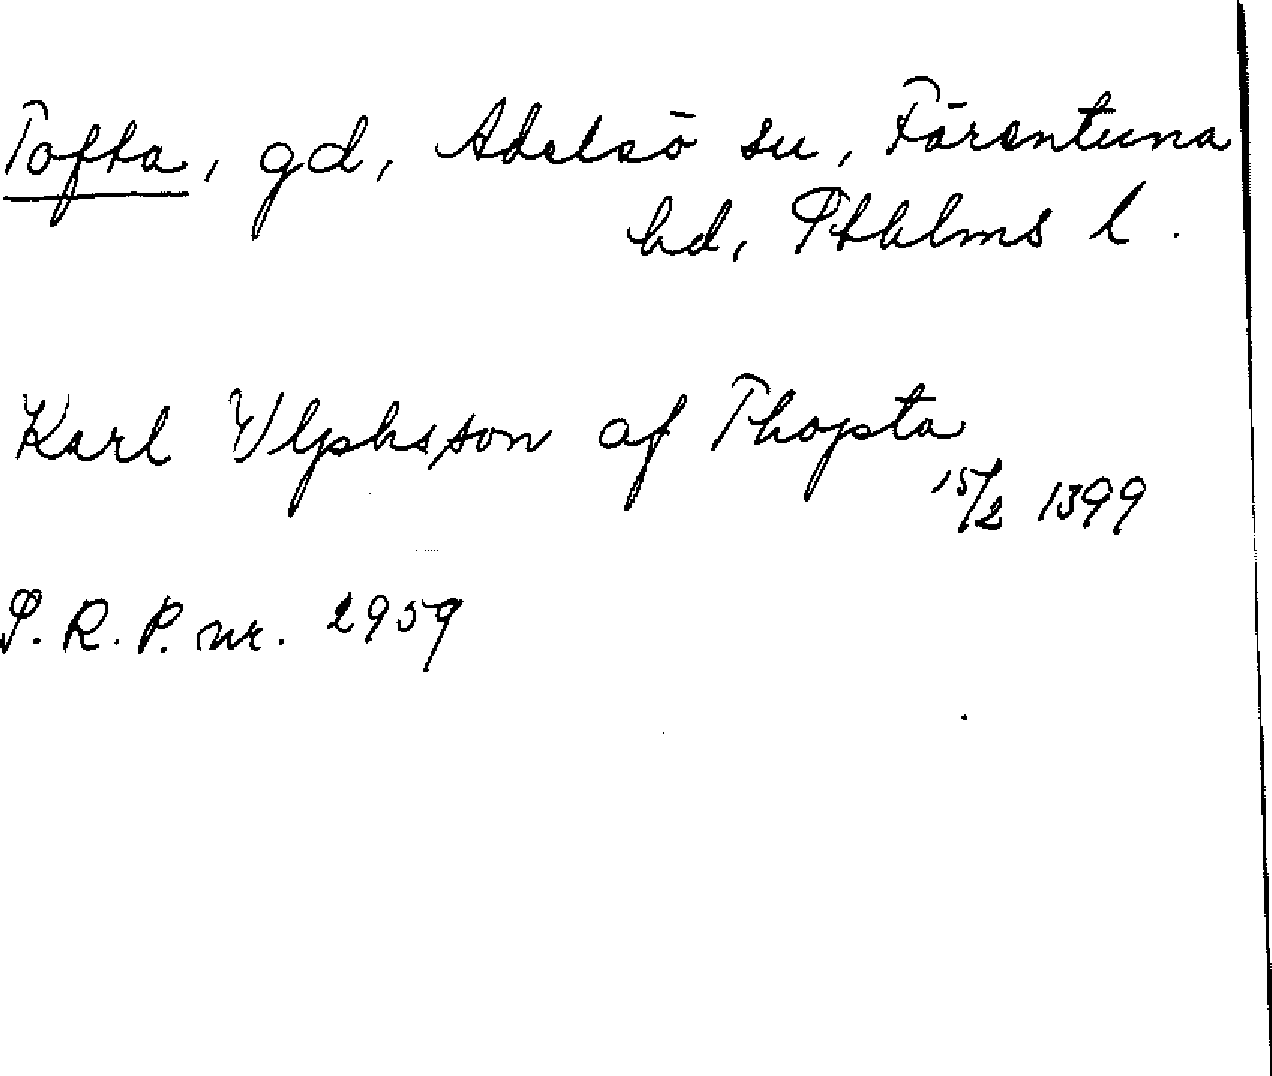 Tofta, gd, Adelsö sn, Färentuna
hd, Sthlms l.
Karl Vlphsson af Thopta
15/2 1399
S. R. P. nr. 2959